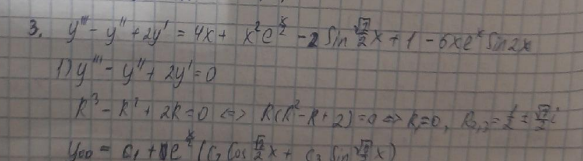 3. y''' - y'' + 2y' = 4x + x² e^{x/2} - 2 sin (√7/2) x + 1 - 5x e^x sin 2x
1) y''' - y'' + 2y' = 0
k³ - k² + 2k = 0 <=> k(k² - k + 2) = 0 => k₁ = 0, k₂,₃ = 1/2 ± (√7/2) i
y₀₀ = c₁ + e^{x/2} (c₂ cos (√7/2) x + c₃ sin (√7/2) x)